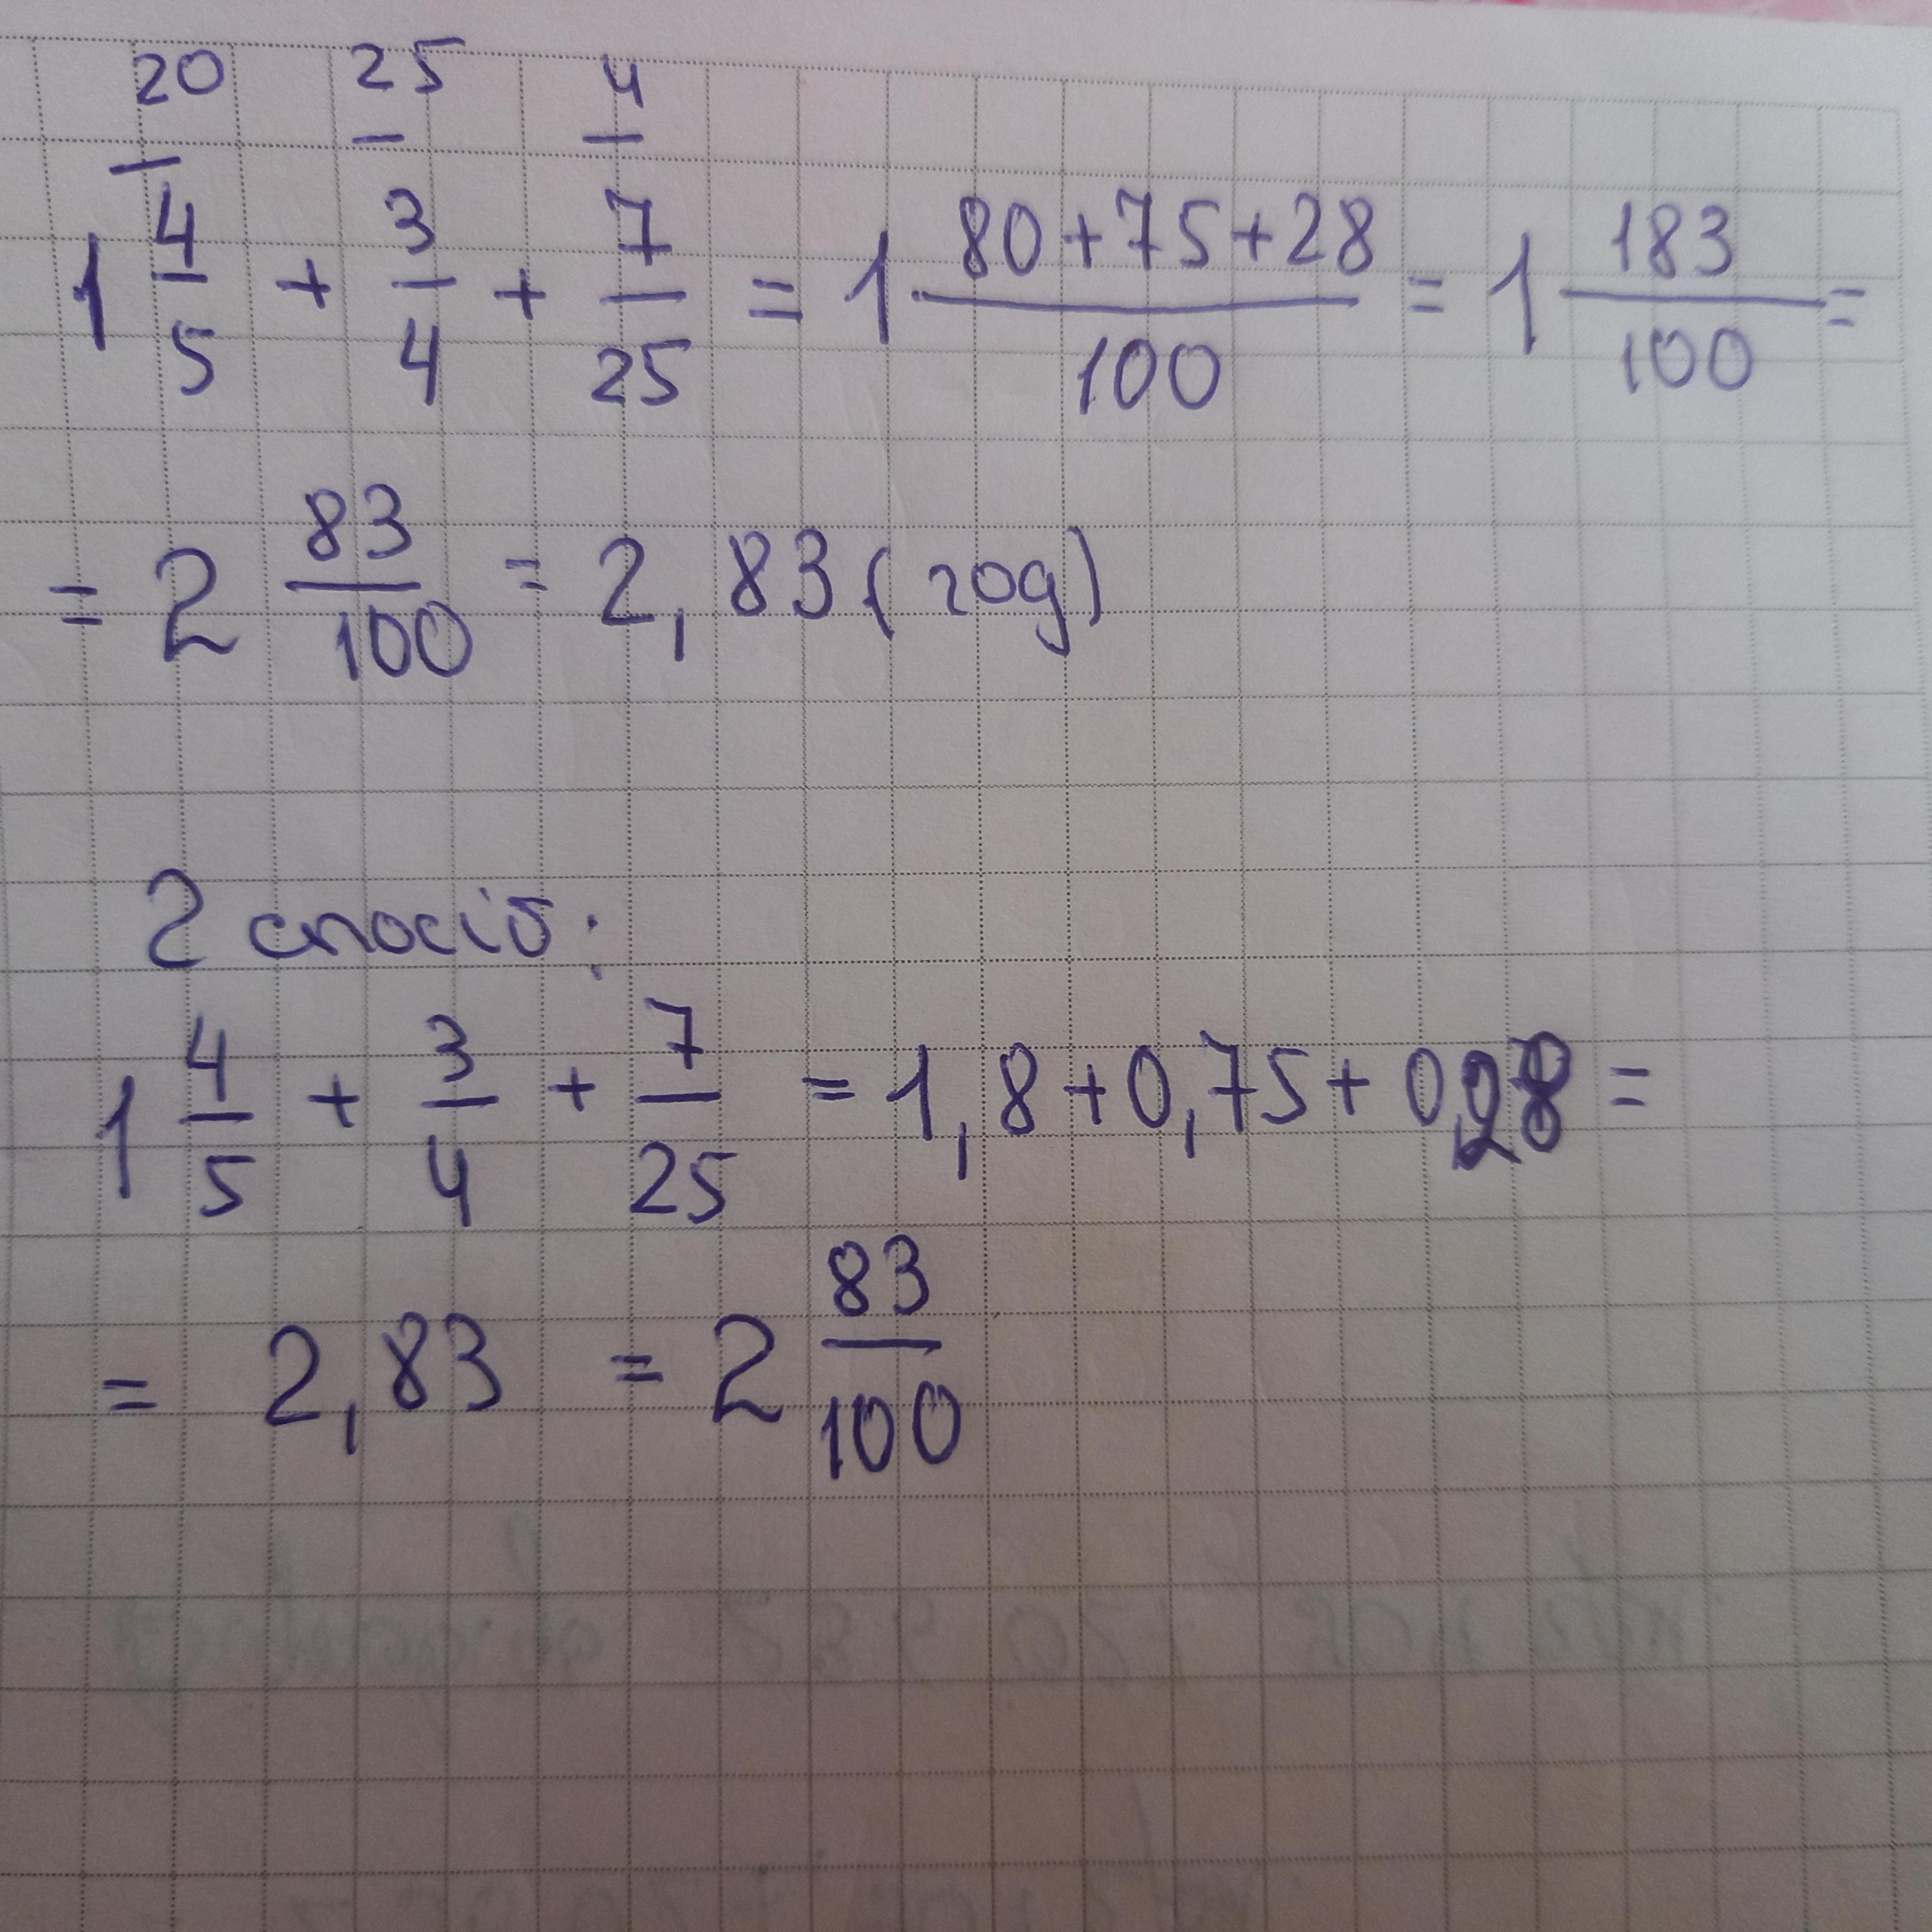 20 25 4
1 4/5 + 3/4 + 7/25 = 1 80+75+28/100 = 1 183/100 =
= 2 83/100 = 2,83 (год)
2 спосіб:
1 4/5 + 3/4 + 7/25 = 1,8 + 0,75 + 0,28 =
= 2,83 = 2 83/100